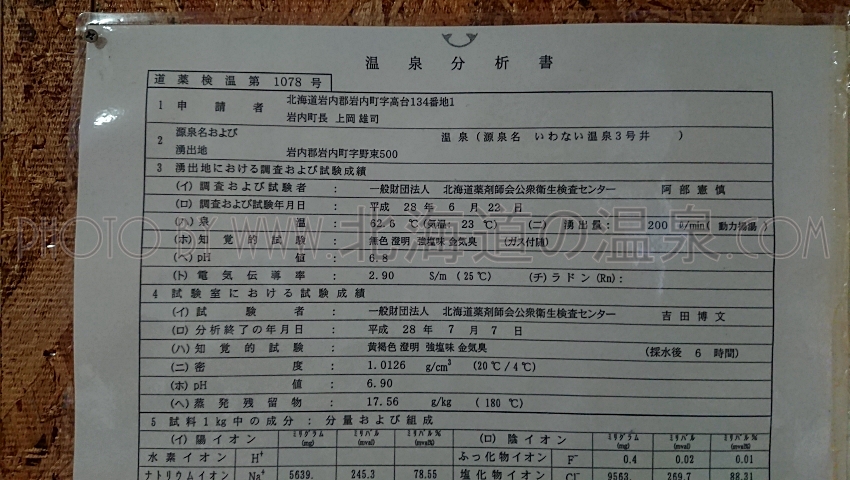 温泉分析書
道薬検温第 1078 号
1 申請者 北海道岩内郡岩内町字高台134番地1
岩内町長 上岡 雄司
2 源泉名および 温泉 (源泉名 いわない温泉3号井 )
湧出地 岩内郡岩内町字野束500
3 湧出地における調査および試験成績
(イ) 調査および試験者 : 一般財団法人 北海道薬剤師会公衆衛生検査センター 阿部憲慎
(ロ) 調査および試験年月日 : 平成 28 年 6 月 22 日
(ハ) 泉温 : 62.5 ℃ (気温 23 ℃) (ニ) 湧出量 : 200 ℓ/min( 動力揚湯 )
(ホ) 知覚的試験 : 無色 澄明 強塩味 金気臭 (ガス付随)
(ヘ) pH値 : 6.8
(ト) 電気伝導率 : 2.90 S/m (25℃) (チ) ラドン(Rn) :
4 試験室における試験成績
(イ) 試験者 : 一般財団法人 北海道薬剤師会公衆衛生検査センター 吉田博文
(ロ) 分析終了の年月日 : 平成 28 年 7 月 7 日
(ハ) 知覚的試験 : 黄褐色 澄明 強塩味 金気臭 (採水後 6 時間)
(ニ) 密度 : 1.0126 g/cm³ (20℃/4℃)
(ホ) pH値 : 6.90
(ヘ) 蒸発残留物 : 17.56 g/kg (180℃)
5 試料1kg中の成分 : 分量および組成
(イ) 陽イオン ミリグラム (mg) ミリバル (mval) ミリバル% (mval%) (ロ) 陰イオン ミリグラム (mg) ミリバル (mval) ミリバル% (mval%)
水素イオン H⁺ ふっ化物イオン F⁻ 0.4 0.02 0.01
ナトリウムイオン Na⁺ 5639. 245.3 78.55 塩化物イオン Cl⁻ 9563. 269.7 88.31
PHOTO BY WWW.北海道の温泉.COM